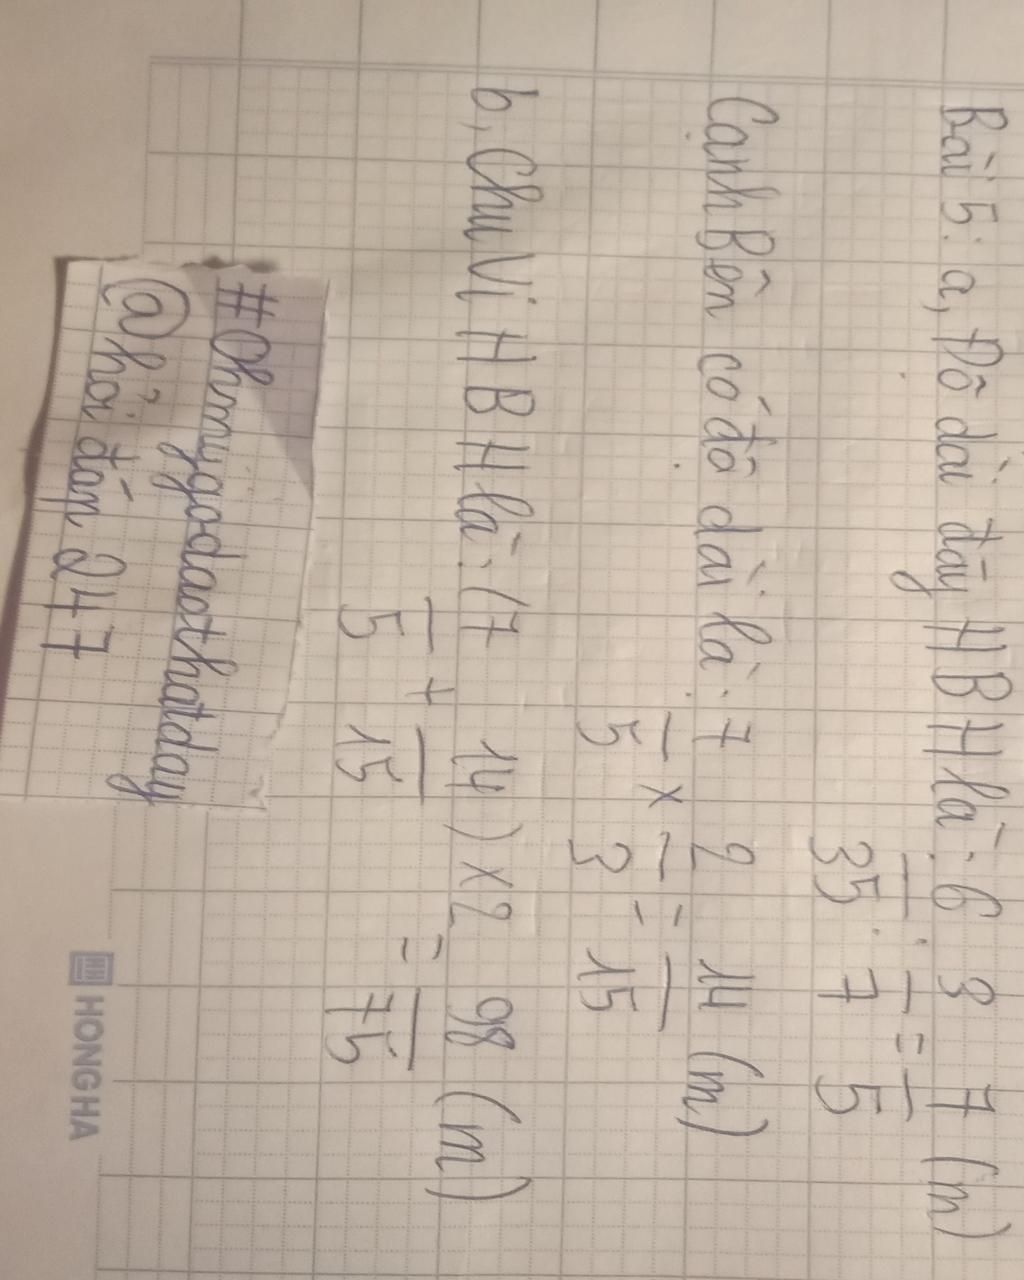 Bài 5: a, Độ dài đáy HBH là: 6/35 : 3/7 = 7/5 (m)
Cạnh Bên có độ dài là: 7/5 x 2/3 = 14/15 (m)
b, Chu Vi HBH là: (7/5 + 14/15) x 2 = 98/75 (m)
#Ohmygodaothatday
@hỏi đáp 247
HONG HA